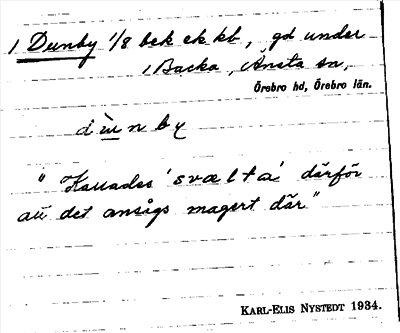 1 Dunby 1/8 bek ek kt, gd under
1 Backa, Ånsta sn,
Örebro hd, Örebro län.
dunby
"Kallades 'svælta' därför
att det ansågs magert där"
KARL-ELIS NYSTEDT 1934.